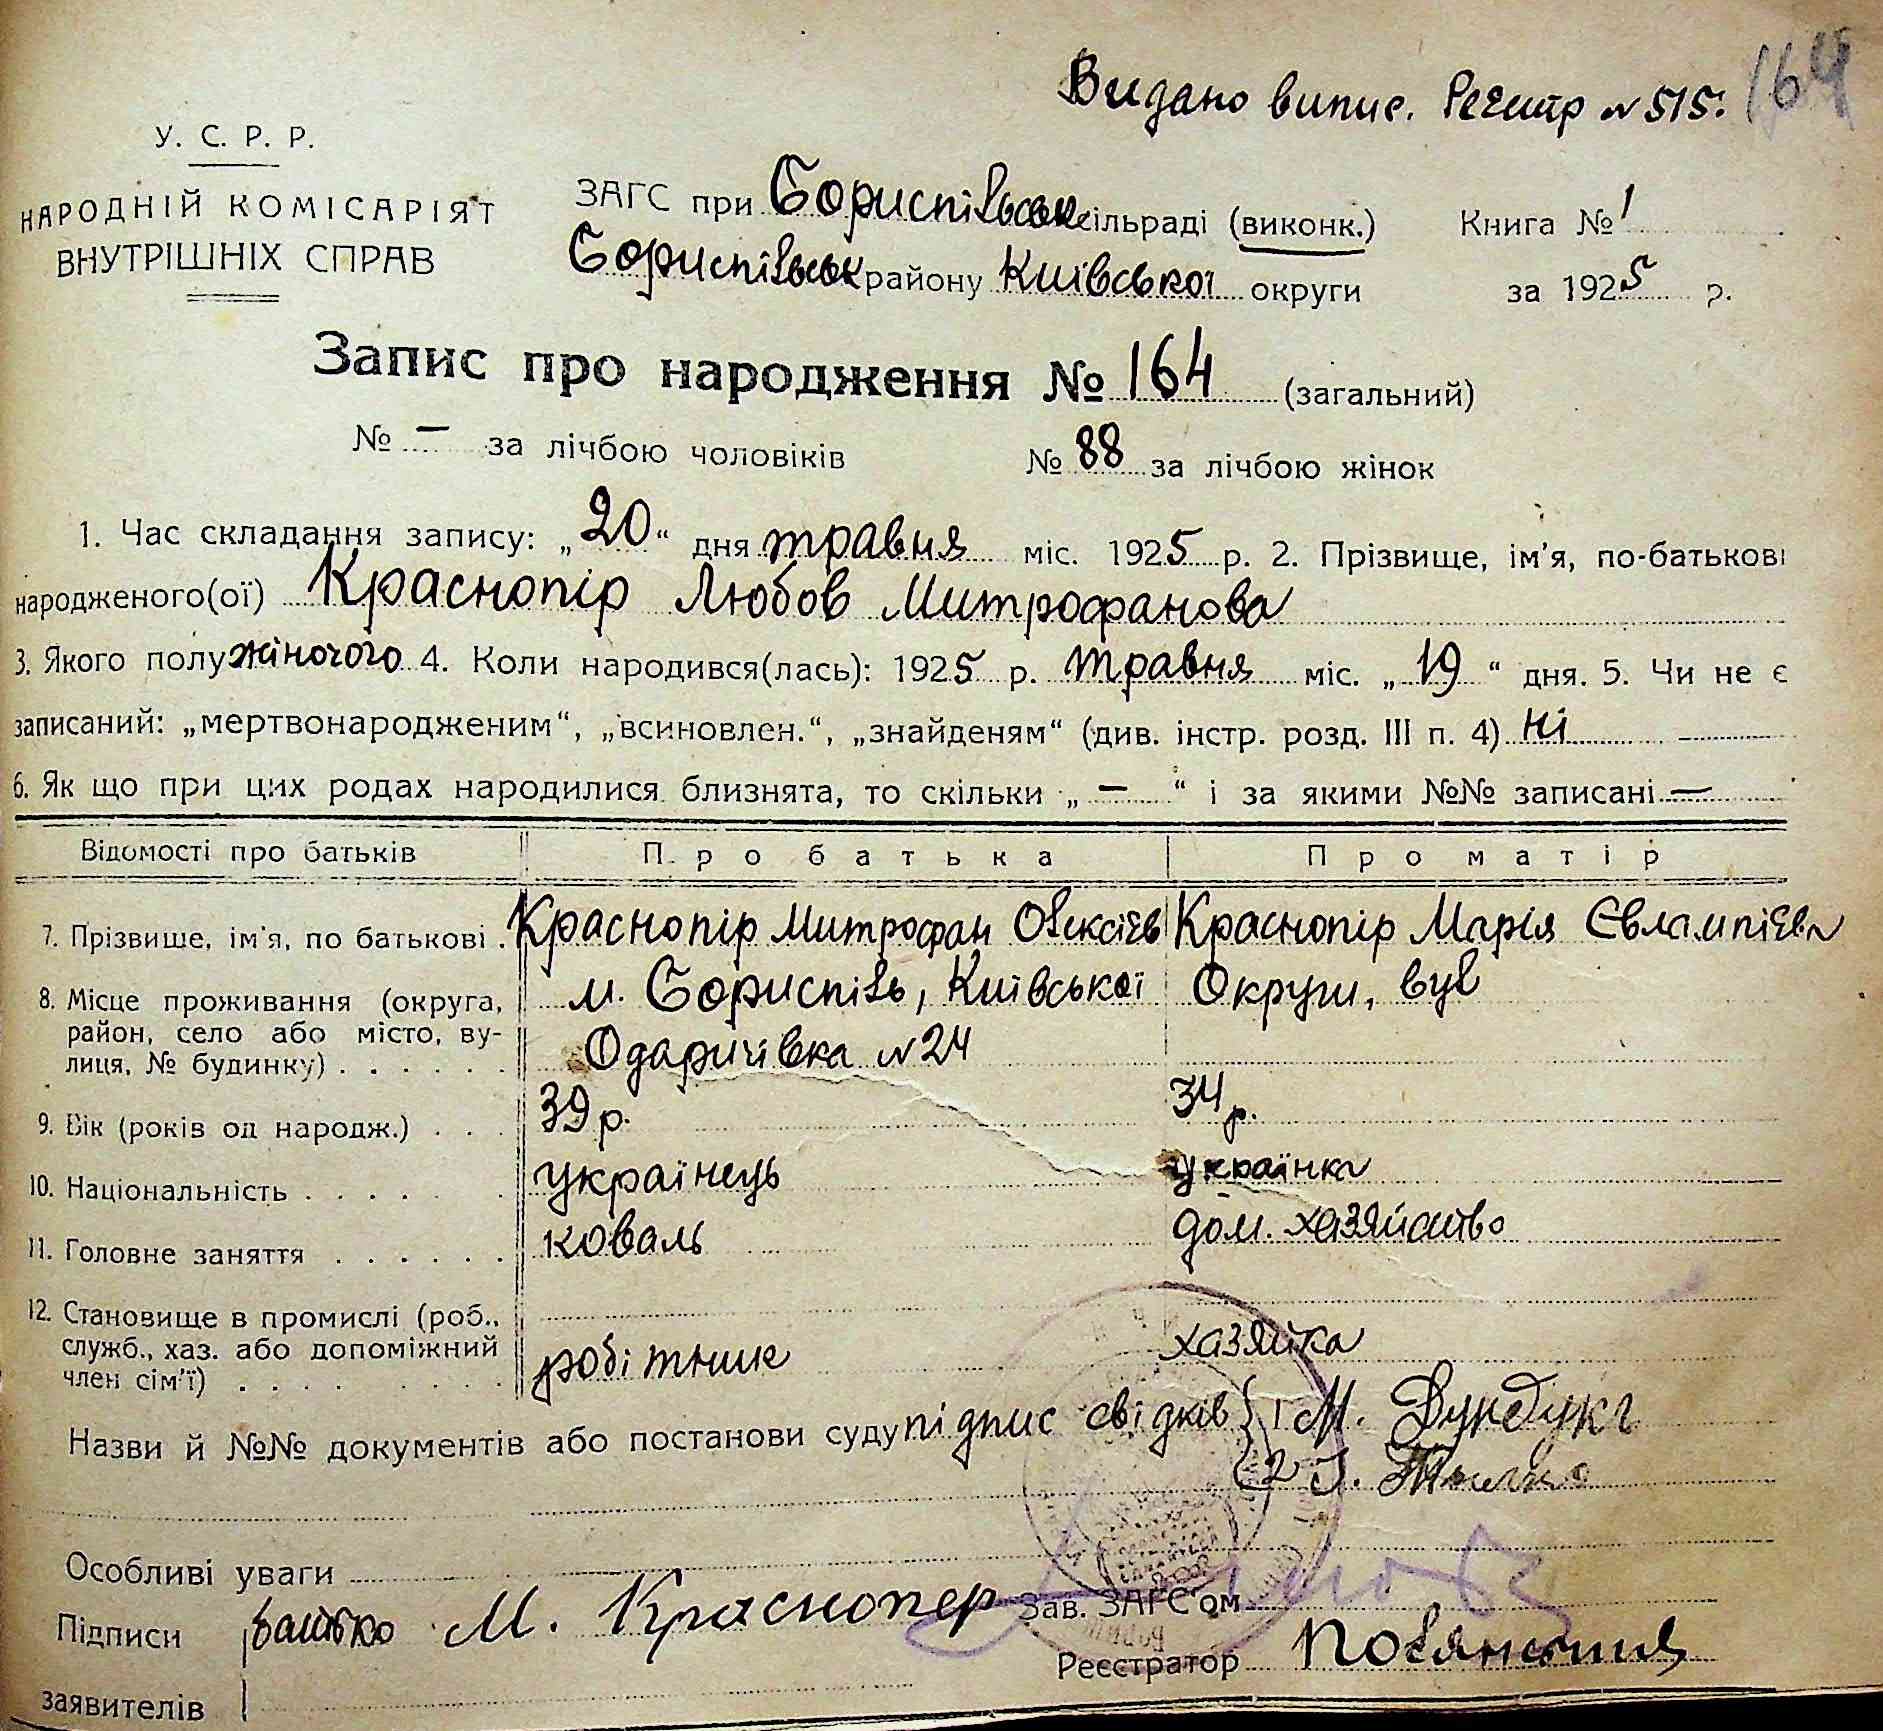 Видано випис. Регистр № 515. 164
У. С. Р. Р.
НАРОДНІЙ КОМІСАРІЯТ
ВНУТРІШНІХ СПРАВ
ЗАГС при Бориспільськ сільраді (виконк.)
Бориспільськ району Київської округи
Книга № 1
за 1925 р.
Запис про народження № 164 (загальний)
№ — за лічбою чоловіків № 88 за лічбою жінок
1. Час складання запису: „20“ дня травня міс. 1925 р. 2. Прізвище, ім'я, по-батькові
народженого(ої) Краснопір Любов Митрофанова
3. Якого полу жіночого 4. Коли народився(лась): 1925 р. травня міс. „19“ дня. 5. Чи не є
записаний: „мертвонародженим“, „всиновлен.“, „знайденям“ (див. інстр. розд. III п. 4) ні
6. Як що при цих родах народилися близнята, то скільки „—“ і за якими №№ записані —
Відомості про батьків Про батька Про матір
7. Прізвище, ім'я, по батькові . Краснопір Митрофан Олексієв Краснопір Марія Євлампієва
8. Місце проживання (округа, м. Бориспіль, Київської Округи, вул
район, село або місто, ву- Одаричівка № 24
лиця, № будинку) . . . . . .
9. Вік (років од народж.) . . . 39 р. 34 р.
10. Національність . . . . . українець українка
11. Головне заняття . . . . . . коваль дом. хазяйство
12. Становище в промислі (роб.,
служб., хаз. або допоміжний робітник хазяйка
член сім'ї) . . . .
Назви й №№ документів або постанови суду підпис свідків } 1 М.
{ 2
Особливі уваги
Підписи батько М. Краснопер Зав. ЗАГС'ом
Реєстратор
заявителів